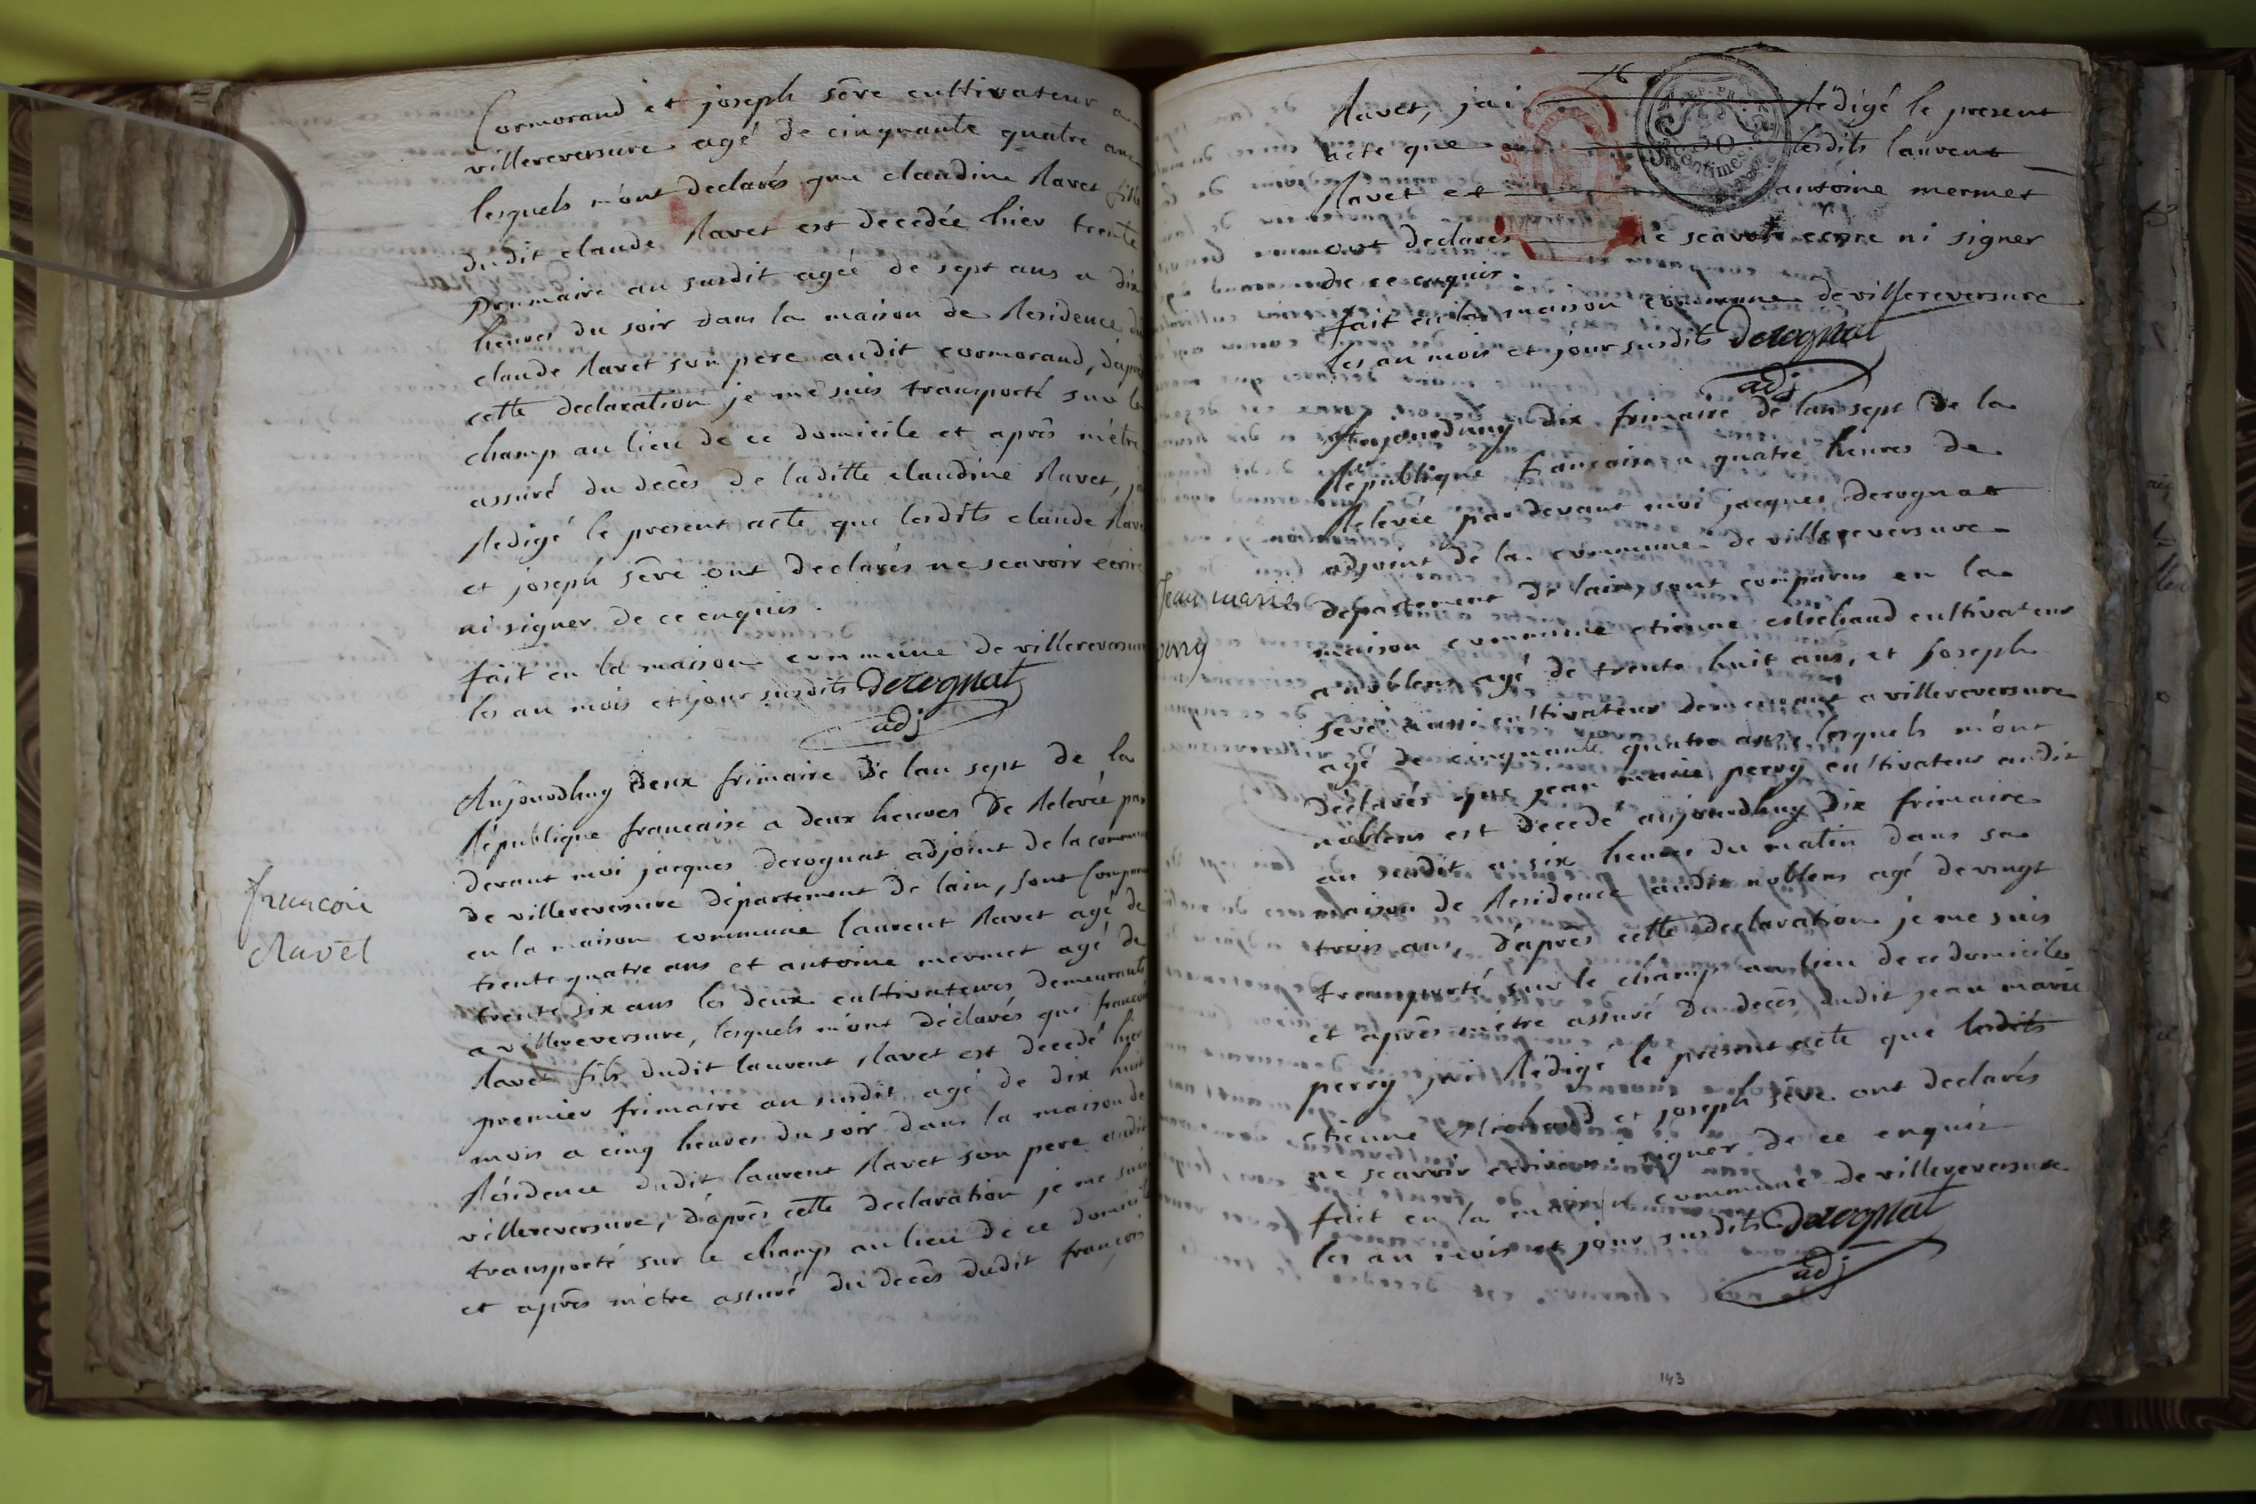 Cormorand et joseph sêve cultivateur a
villereversure agé de cinquante quatre ans
lesquels m'ont declarés que claudine Ravet fille
dudit claude Ravet est decedée hier trente
Brumaire an susdit agée de sept ans a dix
heures du soir dans la maison de Residence du
claude Ravet son pere audit cormorand, d'après
cette declaration je me suis transporté sur le
champ au lieu de ce domicile et aprês m'être
assuré du decês de laditte claudine Ravet, jai
Rédigé le present acte que lesdits claude Rav
et joseph sêve ont declarés ne scavoir écrire
ni signer de ce enquis.
fait en la maison commune de villereversure
les an mois et jour susdits derognat
adj
françois
Ravet
Aujourdhuy deux frimaire de lan sept de la
République francaise a deux heures de Relevée par
devant moi jacques derognat adjoint de la commune
de villereversure département de lain, sont comparu
en la maison commune laurent Ravet agé de
trente quatre ans et antoine mermet agé de
trente six ans les deux cultivateurs demeurants
a villereversure, lesquels m'ont déclarés que françois
Ravet fils dudit laurent Ravet est decedé hier
premier frimaire an susdit agé de dix huit
mois a cinq heures du soir dans la maison de
Résidence dudit laurent Ravet son pere audit
villereversure, d'aprês cette declaration je me suis
transporté sur le champ au lieu de ce domicile
et aprês m'etre assuré du decês dudit françois
Ravet, jai Rédigé le present
acte que lesdits laurent
Ravet et antoine mermet
ont declarés ne scavoir ecrire ni signer
de ce enquis.
fait en la maison commune de villereversure
les an mois et jour susdits derognat
adj
50
centimes
jean marie
perry
Aujourdhuy dix frimaire de lan sept de la
République francaise a quatre heures de
Relevée par devant moi jacques derognat
adjoint de la commune de villereversure
département de lain, sont comparus en la
maison commune etienne Michaud cultivateur
a noblens agé de trente huit ans, et Joseph
sêve aussi cultivateur demeurant a villereversure
agé de cinquante quatre ans, lesquels m'ont
déclarés que jean marie perry cultivateur audit
noblens est decedé aujourdhuy dix frimaire
an susdit a six heures du matin dans sa
maison de Residence audit noblens agé de vingt
trois ans, d'aprês cette declaration je me suis
transporté sur le champ au lieu de ce domicile
et aprês m'être assuré du decês dudit jean marie
perry jai Rédigé le présent acte que lesdits
etienne Michaud et joseph sêve ont declarés
ne scavoir écrire ni signer de ce enquis
fait en la maison commune de villereversure
les an mois et jour susdits derognat
adj
143